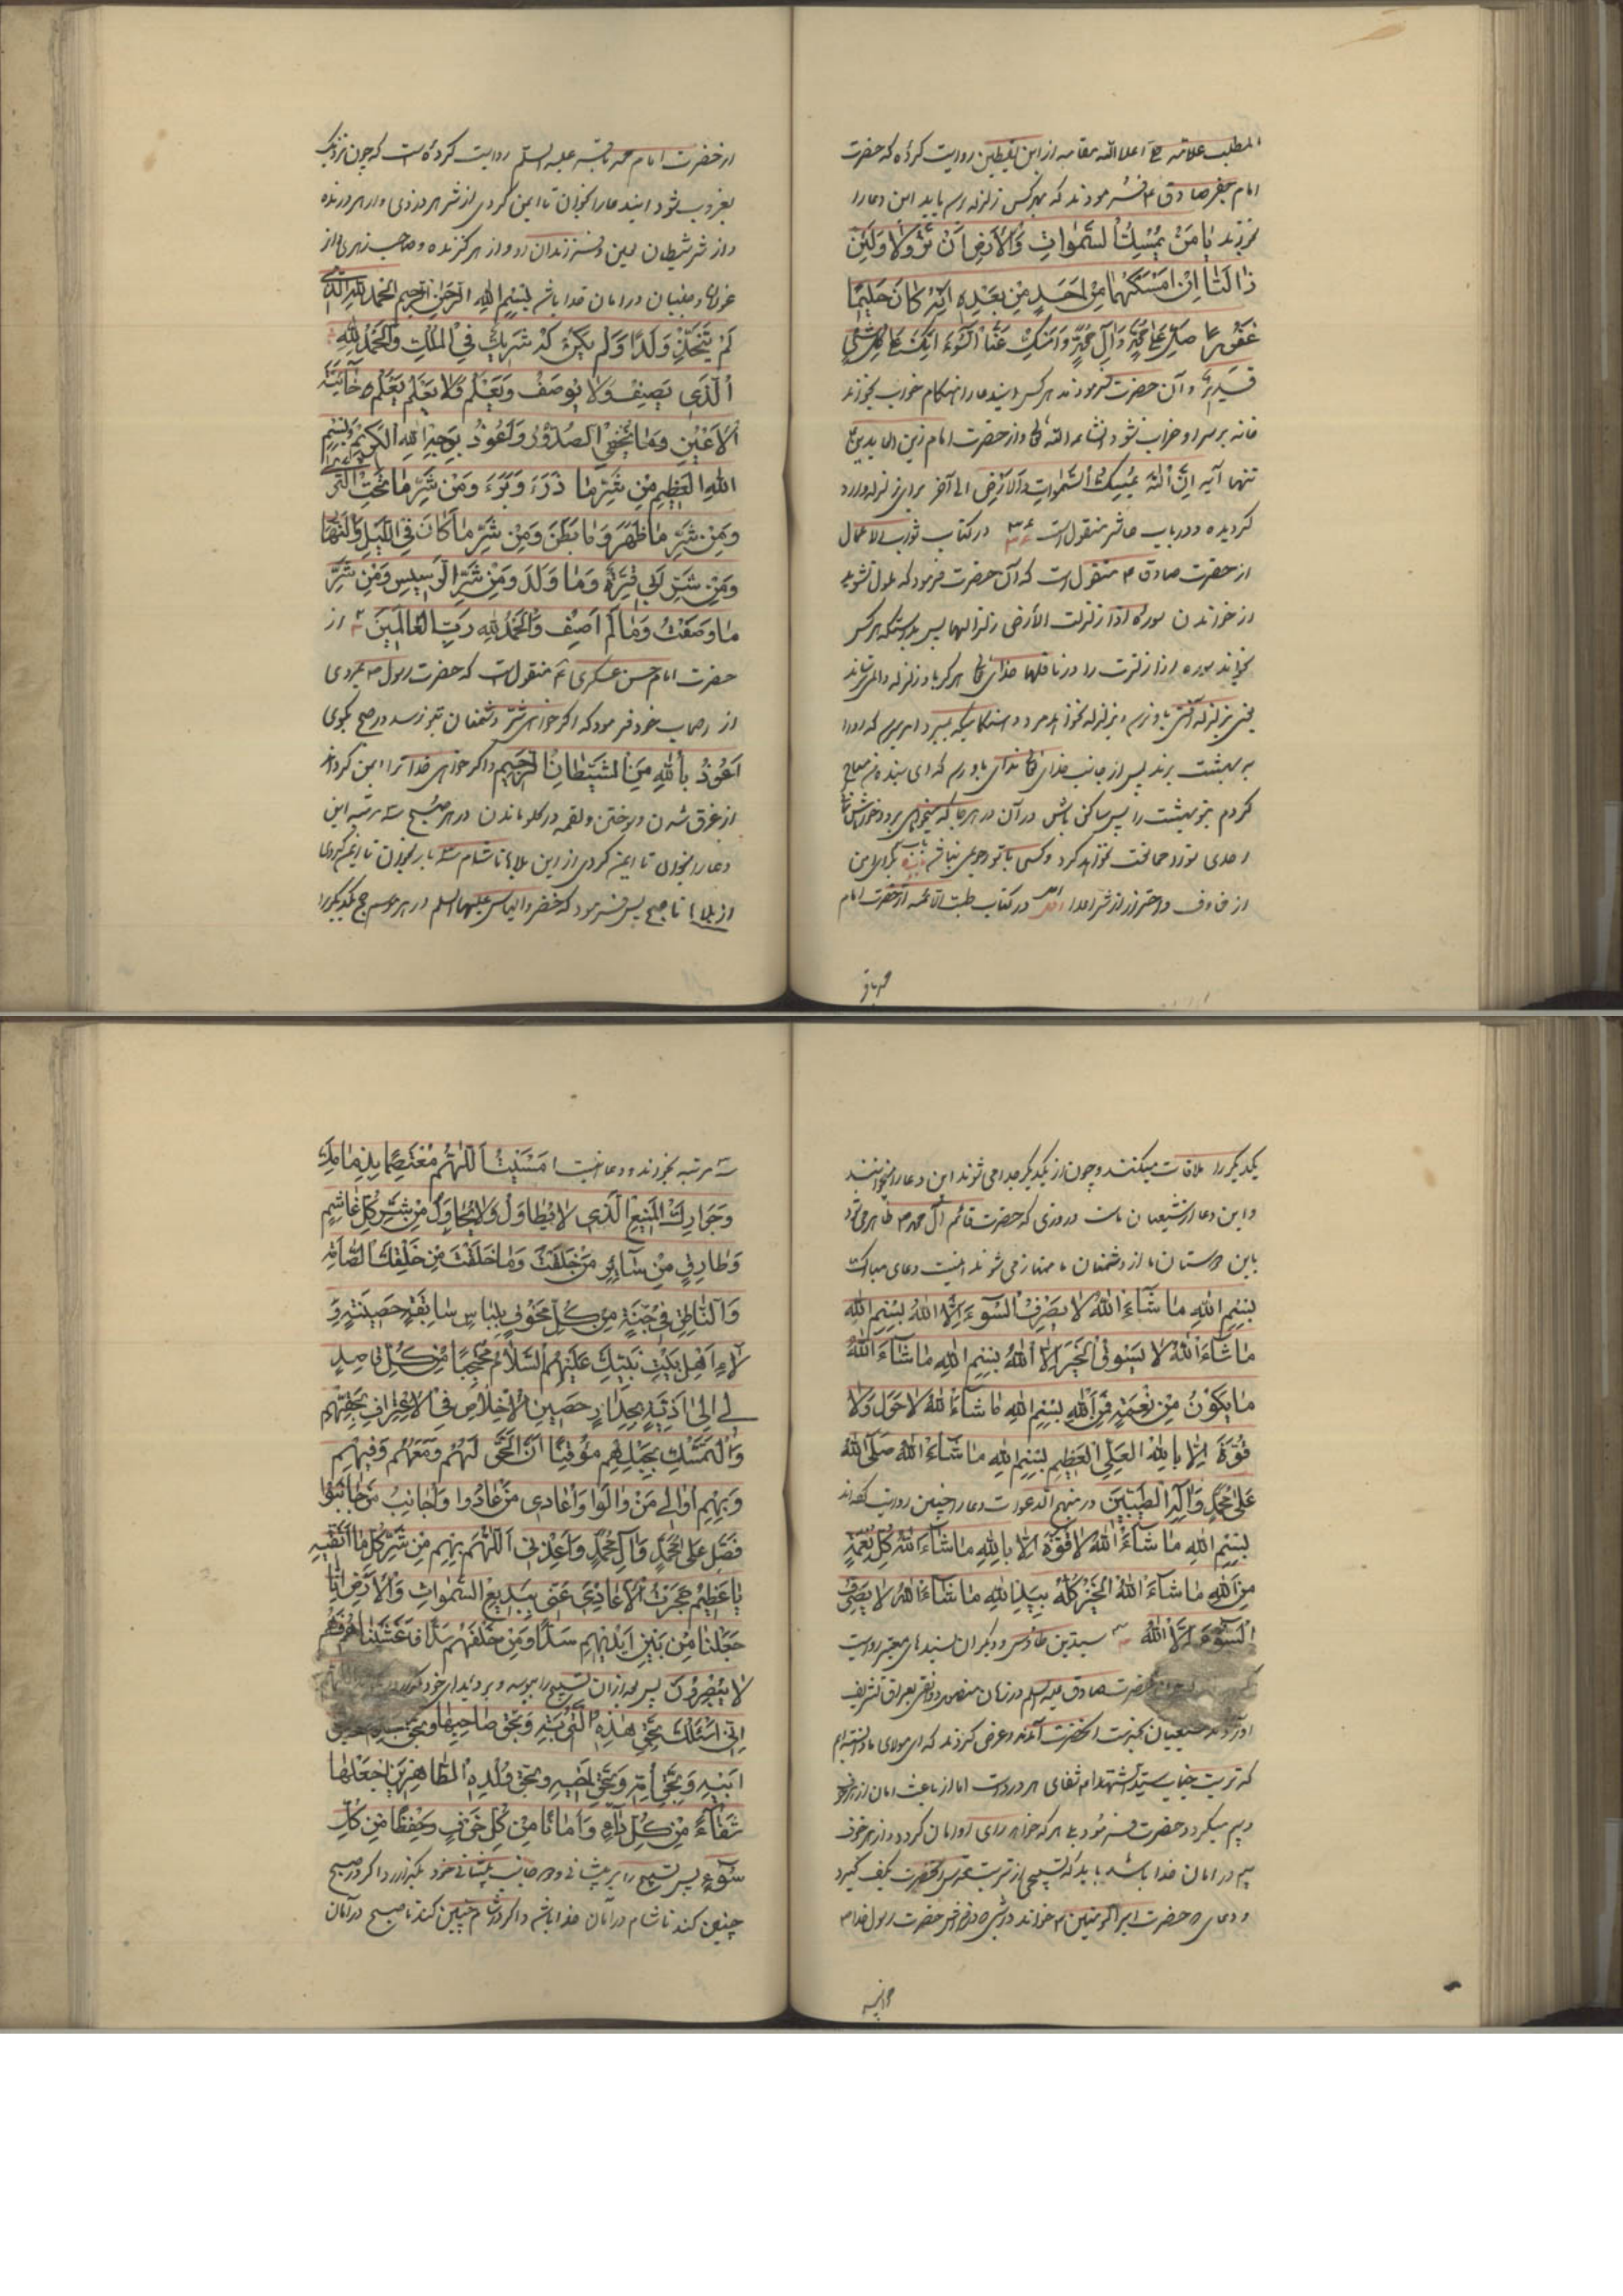 المطلب علامه حلی اعلا الله مقامه از ابن یقطین روایت کرده که حضرت
امام جعفر صادق ع فرمودند که بهر کس زلزله رسد باید این دعا را
بخواند یا مَنْ یُمْسِکُ السَّمٰواتِ وَالْاَرْضَ اَنْ تَزُولا وَلَئِنْ
زالَتا اِنْ اَمْسَکَهُما مِنْ اَحَدٍ مِنْ بَعْدِهِ اِنَّهُ کانَ حَلیمًا
غَفُورًا صَلِّ عَلیٰ مُحَمَّدٍ وَآلِ مُحَمَّدٍ وَاَمْسِکْ عَنَّا السُّوءَ اِنَّکَ عَلیٰ کُلِّ شَیْءٍ
قَدیرٌ و آن حضرت فرمودند هر کس ایندعا را هنگام خواب بخواند
خانه بر سر او خراب نشود انشاء الله تعالی و از حضرت امام زین العابدین ع
تنها آیه اِنَّ اللهَ یُمْسِکُ السَّمٰواتِ وَالْاَرْضَ الی آخر برای زلزله وارد
کردیده و در باب عاشر منقول است در کتاب ثواب الاعمال
از حضرت صادق ع منقول است که آن حضرت فرمود که ملول نشوید
از خواندن سوره اذا زلزلت الارض زلزالها پس بدرستیکه هر کس
بخواند سوره اذا زلزلت را در نافلها خدای تعالی هرگز باو زلزله نرساند
به بهشت برند پس از جانب خدای تعالی ندای باو رسد که ای بنده من مباح
کردم بتو بهشت را پس ساکن باش در آن در هر جا که میخواهی
احدی تو را ممانعت نخواهد کرد
در کتاب طب الائمه از حضرت امام
محمد باقر
از حضرت امام محمد باقر علیه السلم روایت کرده است که چون نزدیک
بغروب شود اینرا بخوان تا ایمن کردی از شر هر دزدی و از هر درنده
و از شر شیطان لعین و فرزندان او و از هر گزنده و صاحب زهری و از
غولها و جنیان در امان خدا باشی بِسْمِ اللهِ الرَّحْمٰنِ الرَّحیمِ اَلْحَمْدُ لِلّهِ الَّذی
لَمْ یَتَّخِذْ وَلَدًا وَلَمْ یَکُنْ لَهُ شَریکٌ فِی الْمُلْکِ وَالْحَمْدُ لِلّهِ
الَّذی یَصِفُ وَلا یُوصَفُ وَیَعْلَمُ وَلا یُعْلَمُ یَعْلَمُ خائِنَةَ
الْاَعْیُنِ وَما تُخْفِی الصُّدُورُ وَاَعُوذُ بِوَجْهِ اللهِ الْکَریمِ وَبِسْمِ
اللهِ الْعَظیمِ مِنْ شَرِّ ما ذَرَءَ وَبَرَءَ وَمِنْ شَرِّ ما تَحْتَ الثَّریٰ
وَمِنْ شَرِّ ما ظَهَرَ وَما بَطَنَ وَمِنْ شَرِّ ما کانَ فِی اللَّیْلِ وَالنَّهارِ
وَمِنْ شَرِّ اَبی قِتْرَةَ وَما وَلَدَ وَمِنْ شَرِّ الرَّسیسِ وَمِنْ شَرِّ
ما وَصَفْتُ وَما لَمْ اَصِفْ وَالْحَمْدُ لِلّهِ رَبِّ الْعالَمینَ از
حضرت امام حسن عسکری ع منقول است که حضرت رسول ص بمردی
از اصحاب خود فرمود که اگر خواهی شر دشمنان بتو نرسد در صبح بگوی
اَعُوذُ بِاللهِ مِنَ الشَّیْطانِ الرَّجیمِ و اگر خواهی خدا ترا ایمن کرداند
از غرق شدن و سوختن و لقمه در کلو ماندن در هر صبح سه مرتبه این
دعا را بخوان تا ایمن کردی از این بلاها تا شام سه بار بخوان تا ایمن کردی
از بلاها تا صبح پس فرمود که خضر و الیاس علیهما السلم در هر موسم حج یکدیگر را
یکدیگر را ملاقات میکنند و چون از یکدیگر جدا می شوند این دعا را میخوانند
و این دعا از شیعیان ماست در روزی که حضرت قائم آل محمد ص ظاهر می شود
باین دوستان ما از دشمنان ما ممتاز می شوند اینست دعای مبارک
بِسْمِ اللهِ ما شاءَ اللهُ لا یَصْرِفُ السُّوءَ اِلَّا اللهُ بِسْمِ اللهِ
ما شاءَ اللهُ لا یَسُوقُ الْخَیْرَ اِلَّا اللهُ بِسْمِ اللهِ ما شاءَ اللهُ
ما یَکُونُ مِنْ نِعْمَةٍ فَمِنَ اللهِ بِسْمِ اللهِ ما شاءَ اللهُ لا حَوْلَ وَلا
قُوَّةَ اِلّا بِاللهِ الْعَلِیِّ الْعَظیمِ بِسْمِ اللهِ ما شاءَ اللهُ صَلَّی اللهُ
عَلیٰ مُحَمَّدٍ وَآلِهِ الطَّیِّبینَ در منهج الدعوات دعا را چنین روایت کرده اند
بِسْمِ اللهِ ما شاءَ اللهُ لا قُوَّةَ اِلّا بِاللهِ ما شاءَ اللهُ کُلُّ نِعْمَةٍ
مِنَ اللهِ ما شاءَ اللهُ الْخَیْرُ کُلُّهُ بِیَدِ اللهِ ما شاءَ اللهُ لا یَصْرِفُ
السُّوءَ اِلَّا اللهُ سید بن طاوس و دیگران بسندهای معتبر روایت
حضرت صادق علیه السلم در زمان منصور دوانقی بعراق تشریف
آوردند شیعیان بخدمت آنحضرت آمدند و عرض کردند که ای مولای ما دانسته ایم
که تربت جناب سید الشهدا ع شفای هر درد است اما آیا باعث امان از هر خوف
و بیم میگردد حضرت فرمود بلی هر که خواهد برای او امان کردد و از هر خوف
بیم در امان خدا باشد باید که تسبیحی از تربت مقدس آنحضرت بکف گیرد
و دعای حضرت امیر المؤمنین ع خواند در شبی که در فراش حضرت رسول خدا ص
خوابید
سه مرتبه بخواند و دعا اینست اَمْسَیْتُ اَللّهُمَّ مُعْتَصِمًا بِذِمامِکَ
وَجِوارِکَ الْمَنیعِ الَّذی لا یُطاوَلُ وَلا یُحاوَلُ مِنْ شَرِّ کُلِّ غاشِمٍ
وَطارِقٍ مِنْ سائِرِ مَنْ خَلَقْتَ وَما خَلَقْتَ مِنْ خَلْقِکَ الصّامِتِ
وَالنّاطِقِ فی جُنَّةٍ مِنْ کُلِّ مَخُوفٍ بِلِباسٍ سابِغَةٍ حَصینَةٍ وَ
لاءِ اَهْلِ بَیْتِ نَبِیِّکَ عَلَیْهِمُ السَّلامُ مُحْتَجِبًا مِنْ کُلِّ قاصِدٍ
لی اِلیٰ اَذِیَّةٍ بِجِدارٍ حَصینِ الْاِخْلاصِ فِی الْاِعْتِرافِ بِحَقِّهِمْ
وَالتَّمَسُّکِ بِحَبْلِهِمْ مُوقِنًا اَنَّ الْحَقَّ لَهُمْ وَمَعَهُمْ وَفیهِمْ
وَبِهِمْ اُوالی مَنْ والَوْا وَاُعادی مَنْ عادَوْا وَاُجانِبُ مَنْ جانَبُوا
فَصَلِّ عَلیٰ مُحَمَّدٍ وَآلِ مُحَمَّدٍ وَاَعِذْنی اَللّهُمَّ بِهِمْ مِنْ شَرِّ کُلِّ ما اَتَّقیهِ
یا عَظیمُ حَجَزْتُ الْاَعادِیَ عَنّی بِبَدیعِ السَّمٰواتِ وَالْاَرْضِ اِنّا
جَعَلْنا مِنْ بَیْنِ اَیْدیهِمْ سَدًّا وَمِنْ خَلْفِهِمْ سَدًّا فَاَغْشَیْناهُمْ فَهُمْ
لا یُبْصِرُونَ پس بعد از آن تسبیح را ببوسد و بر دیدهای خود
اِنّی اَسْئَلُکَ بِحَقِّ هٰذِهِ التُّرْبَةِ وَبِحَقِّ صاحِبِها وَبِحَقِّ جَدِّهِ وَبِحَقِّ
اَبیهِ وَبِحَقِّ اُمِّهِ وَبِحَقِّ اَخیهِ وَبِحَقِّ وُلْدِهِ الطّاهِرینَ اِجْعَلْها
شِفاءً مِنْ کُلِّ داءٍ وَاَمانًا مِنْ کُلِّ خَوْفٍ وَحِفْظًا مِنْ کُلِّ
سُوءٍ پس تسبیح را بر پیشانی خود بگذارد و اگر در صبح
چنین کند تا شام در امان خدا باشد و اگر در شام چنین کند تا صبح در امان